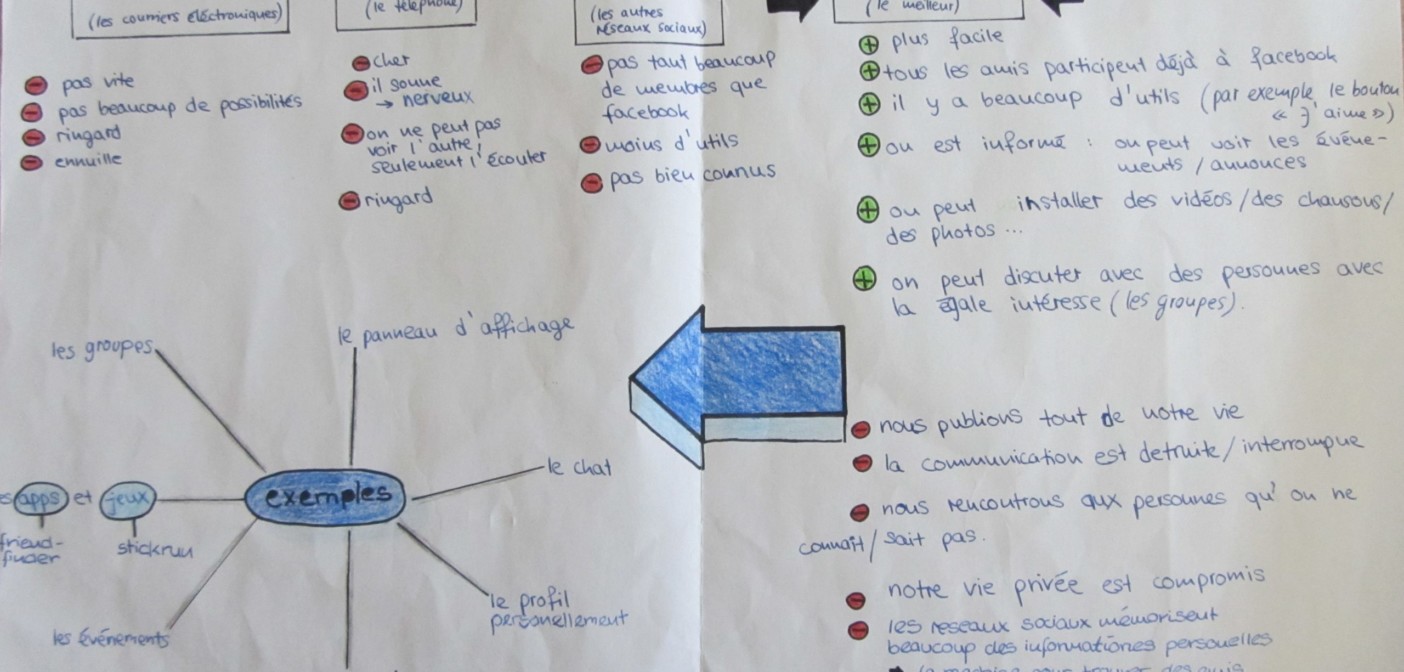 (les courriers éléctroniques)
pas vite
pas beaucoup de possibilités
ringard
ennuille
(le téléphone)
cher
il sonne
→ nerveux
on ne peut pas
voir l'autre,
seulement l'écouter
ringard
(les autres
réseaux sociaux)
pas tant beaucoup
de membres que
facebook
moins d'utils
pas bien connus
(le meilleur)
plus facile
tous les amis participent déjà à facebook
il y a beaucoup d'utils (par exemple le bouton
« j'aime »)
on est informé : on peut voir les événe-
ments / annonces
on peut installer des vidéos / des chansons /
des photos ...
on peut discuter avec des personnes avec
la égale intéresse (les groupes).
nous publions tout de notre vie
la communication est detruite / interrompue
nous rencontrons aux personnes qu'on ne
connaît / sait pas.
notre vie privée est compromis
les reseaux sociaux mémorisent
beaucoup des informationes personelles
exemples
les groupes
le panneau d'affichage
le chat
le profil
personellement
les événements
apps et jeux
friend-
finder
stickrun